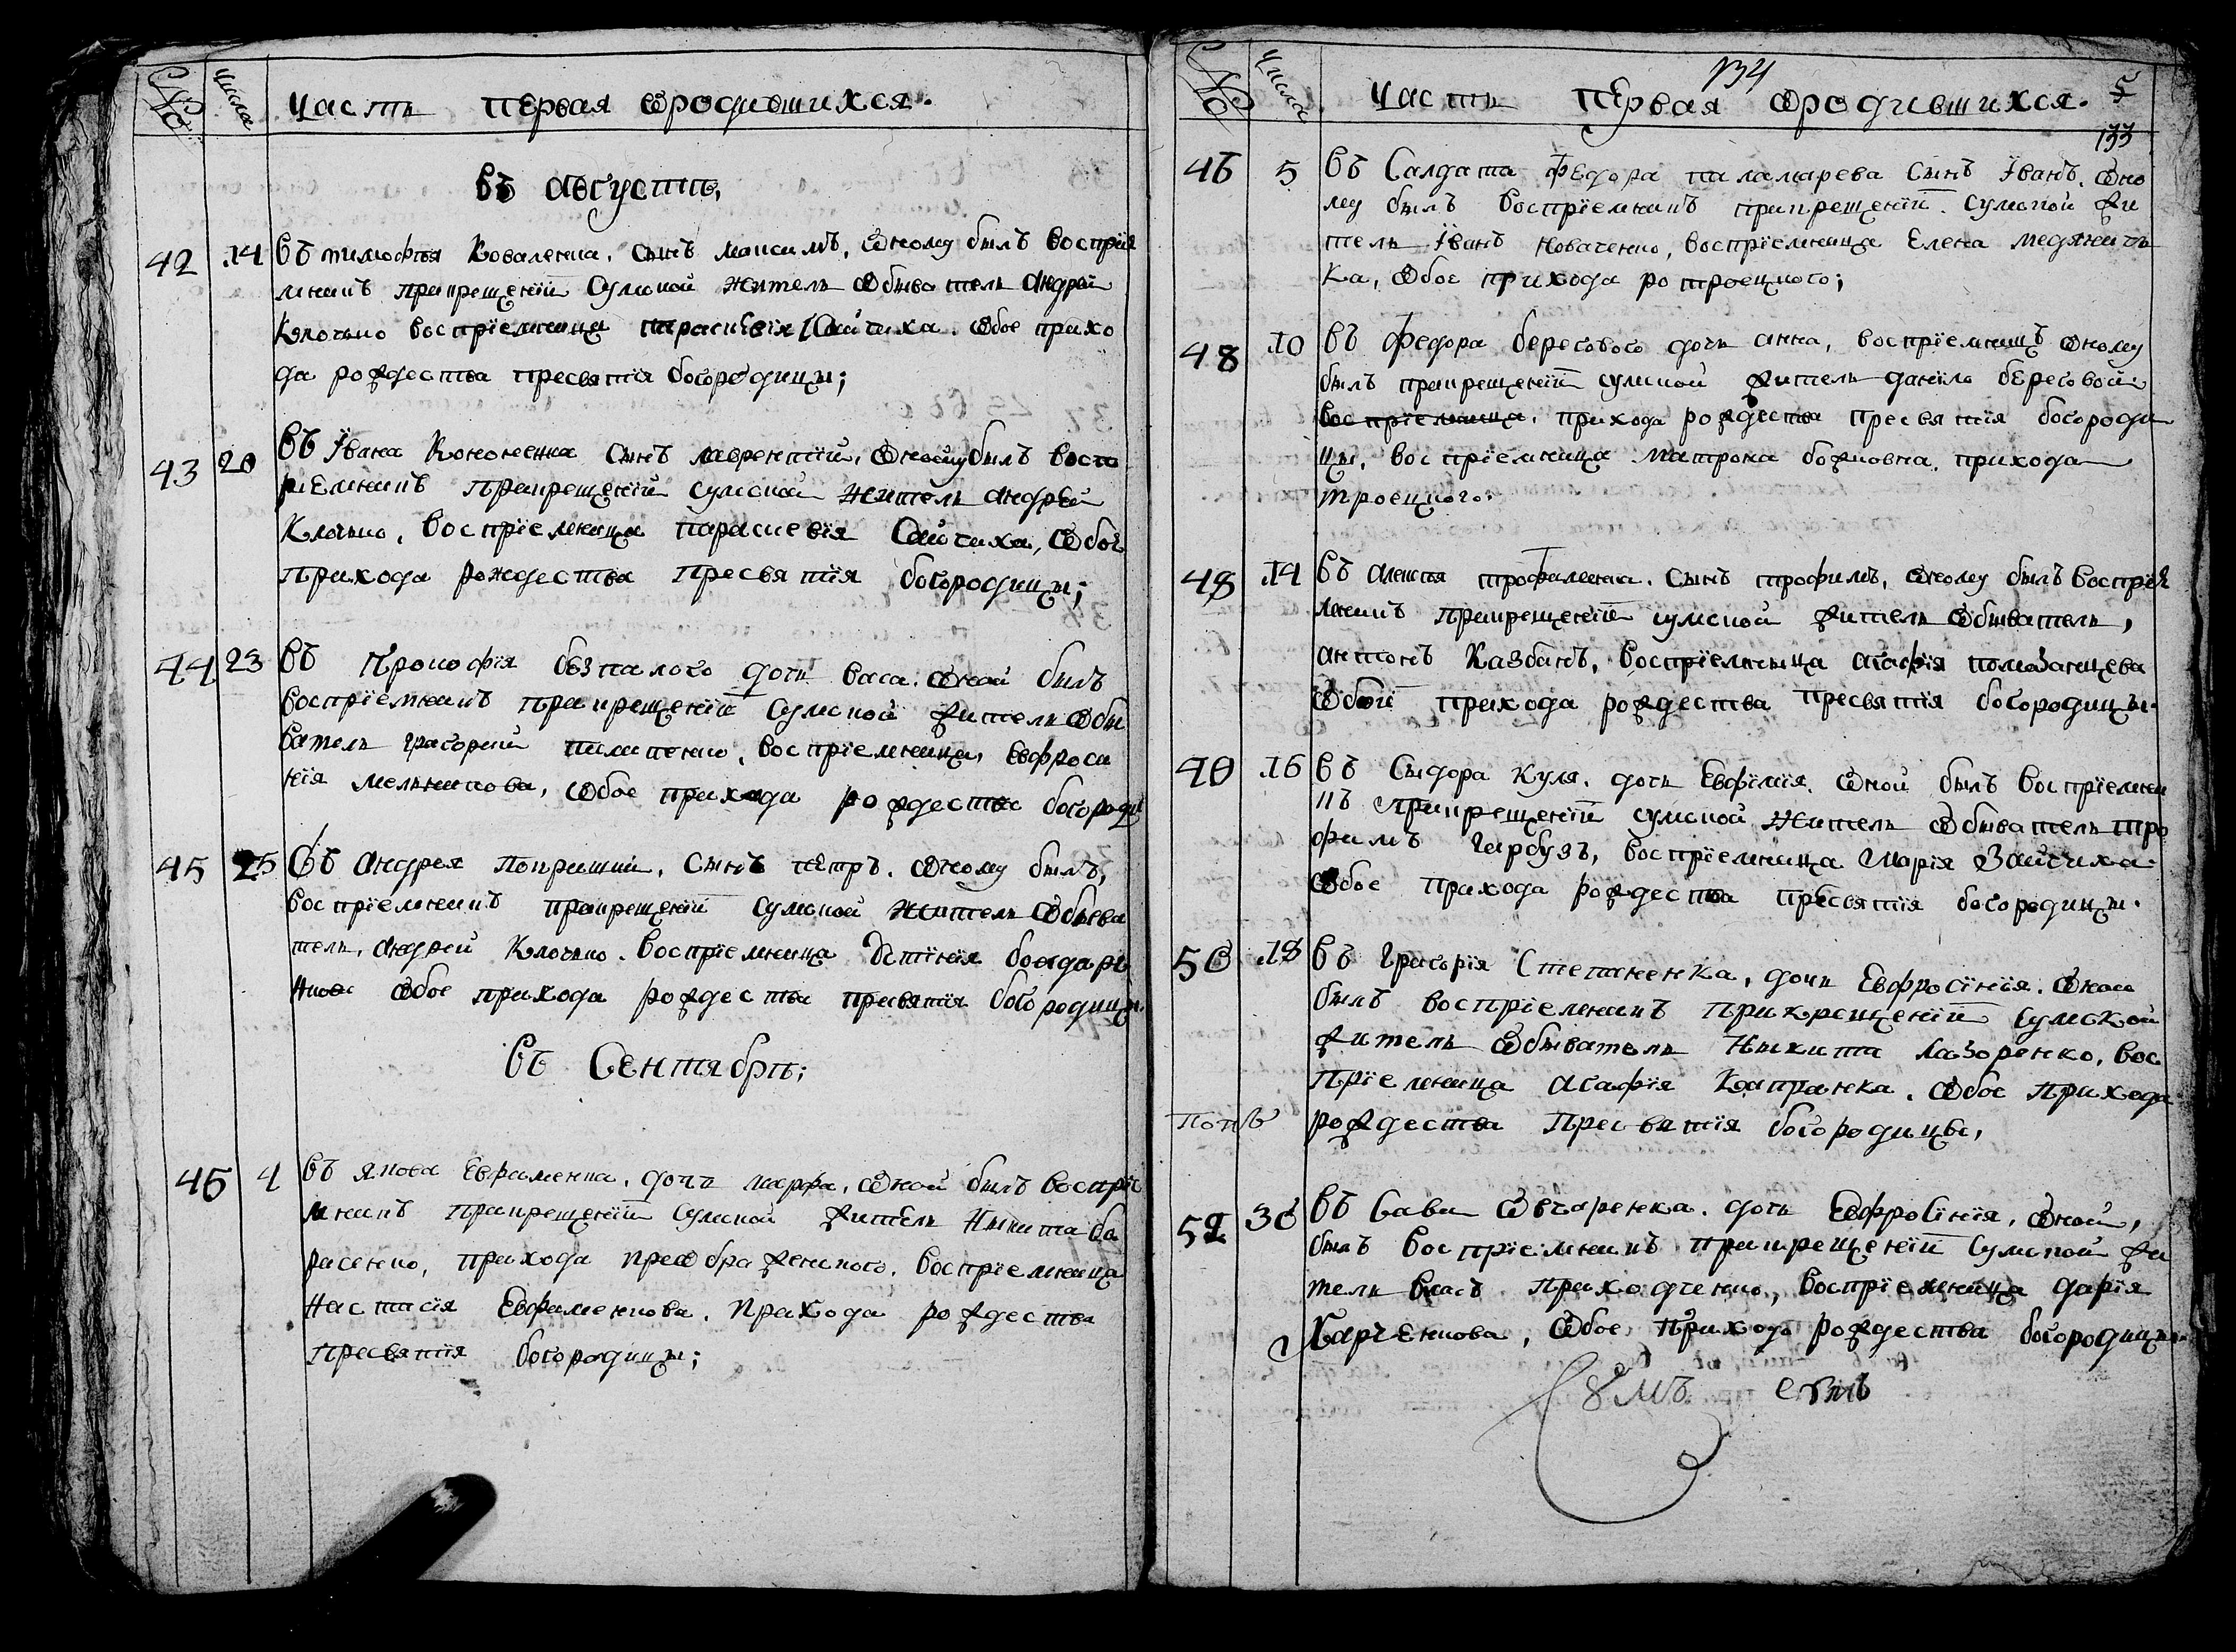 № числа Часть первая ѡродившихся.
въ августѣ,
42 14 въ тимофѣя Коваленка, сынъ максимъ, ѡному былъ воспрїе
мникъ прикрещенїи сумской житель ѡбыватель андрей
Клочько воспрїемница параскевїя Сайчиха. ѡбое прихо
да рождества пресвятїя богородицы;
43 20 въ Їѵана Кононенка сынъ лаврентїй, ѡному былъ восп
рїемникъ прикрещенїи сумской житель андрѣй
Клочько, воспрїемница параскевїя Сайчиха, ѡбое
прихода рождества пресвятїя богородицы;
44 23 въ Прокофїя безпалого дочь васа. ѡной былъ
воспрїемникъ прикрещенїи Сумской житель ѡбы
ватель григорий пилипенко, воспрїемница, Евфроси
нїя мельникова, ѡбое прихода рождества богороди
45 25 въ андрея покришки, сынъ пѣтръ. ѡному былъ,
воспрїемникъ прикрещенїи сумской житель ѡбыва
тель, андрей Клочько. воспрїемница Ѹстїнїя бондарѣ
нкова ѡбое прихода рождества пресвятїя богородицы.
въ Сентябрѣ;
46 4 въ якова Ефименка, дочь марфа, ѡной былъ воспрїе
мникъ прикрещенїи Сумской житель Никита ба
расенко, прихода преѡбраженского, воспрїемница
Настасїя Евфименкова. прихода рождества
пресвятїя богородицы;
134
№ числа Часть пѣрвая ѡродившихся. 5
133
46 5 въ Салдата Федора паламарева Сынъ Їванъ. ѡно
му былъ воспрїемникъ прикрещенїи. сумской жи
тель Їванъ коваченко, воспрїемница Елена медянич
ка, ѡбое прихода ро троецкого;
48 10 въ Федора берегового дочь анна, воспрїемникъ ѡному
былъ прикрещенїи сумской житель данїло бѣреговой
воспрїемница, прихода рождества пресвятїя богороди
цы, воспрїемница матрона божковна, прихода
троецкого.
48 14 въ алексѣя трофименка. сынъ трофимъ, ѡному былъ воспрїе
мникъ прикрещенїи сумской житель ѡбыватель,
антонъ Казбанъ, воспрїемница агафїя помазанцева
ѡбоїи прихода рождества пресвятїя богородицы.
49 16 въ Сидора Куля. дочь Евфїмїя. ѡной былъ воспрїемни
къ прикрещенїи сумской житель ѡбыватель тро
фимъ Гарбузъ, воспрїемница марїя Зайчиха
ѡбое прихода рождества пресвятїя богородицы.
50 18 въ Григорїя Степаненка, дочь Евфросїнїя. ѡной
былъ воспрїемникъ прикрещенїи сумской
житель ѡбыватель Никита лазоренко, вос
прїемница агафїя Капранка. ѡбое прихода
рождества Пресвятїя богородицы,
попъ
52 30 въ Савы ѡвчаренка. дочь Евфросїнїя, ѡной,
былъ воспрїемникъ прикрещенїи сумской жи
тель власъ приходченко, воспрїемница дарїя
Харченкова, ѡбое прихода рождества богородицы.